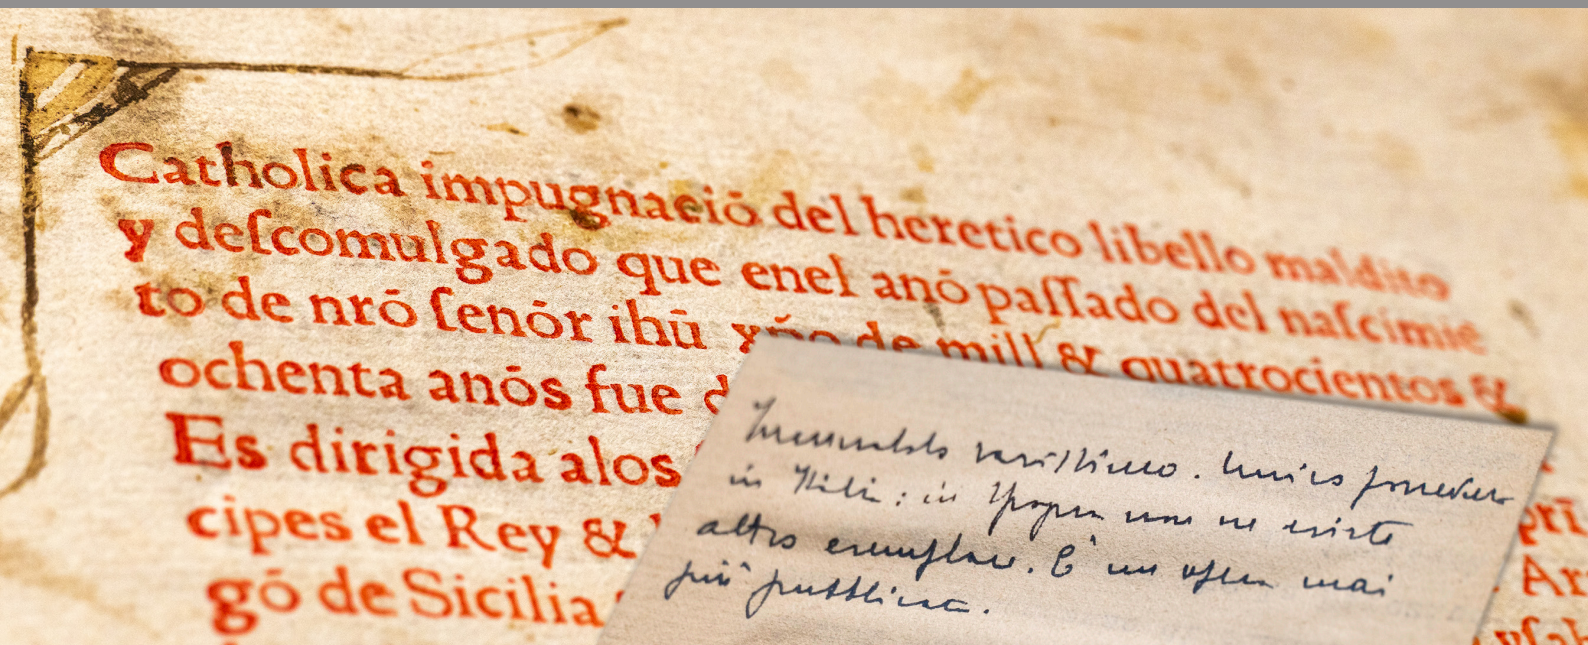 Catholica impugnaciō del heretico libello maldito
y deſcomulgado que enel anō paſſado del naſcimiē
to de nrō ſenōr ihū xp̄o de mill & quatrocientos &
ochenta anōs fue d
Es dirigida alos
cipes el Rey &
gō de Sicilia
prī
Ar
yſab
Incunabolo rarissimo. Unico posseduto
in Italia: in Spagna non ne esiste
altro esemplare. È un opera mai
più pubblicata.